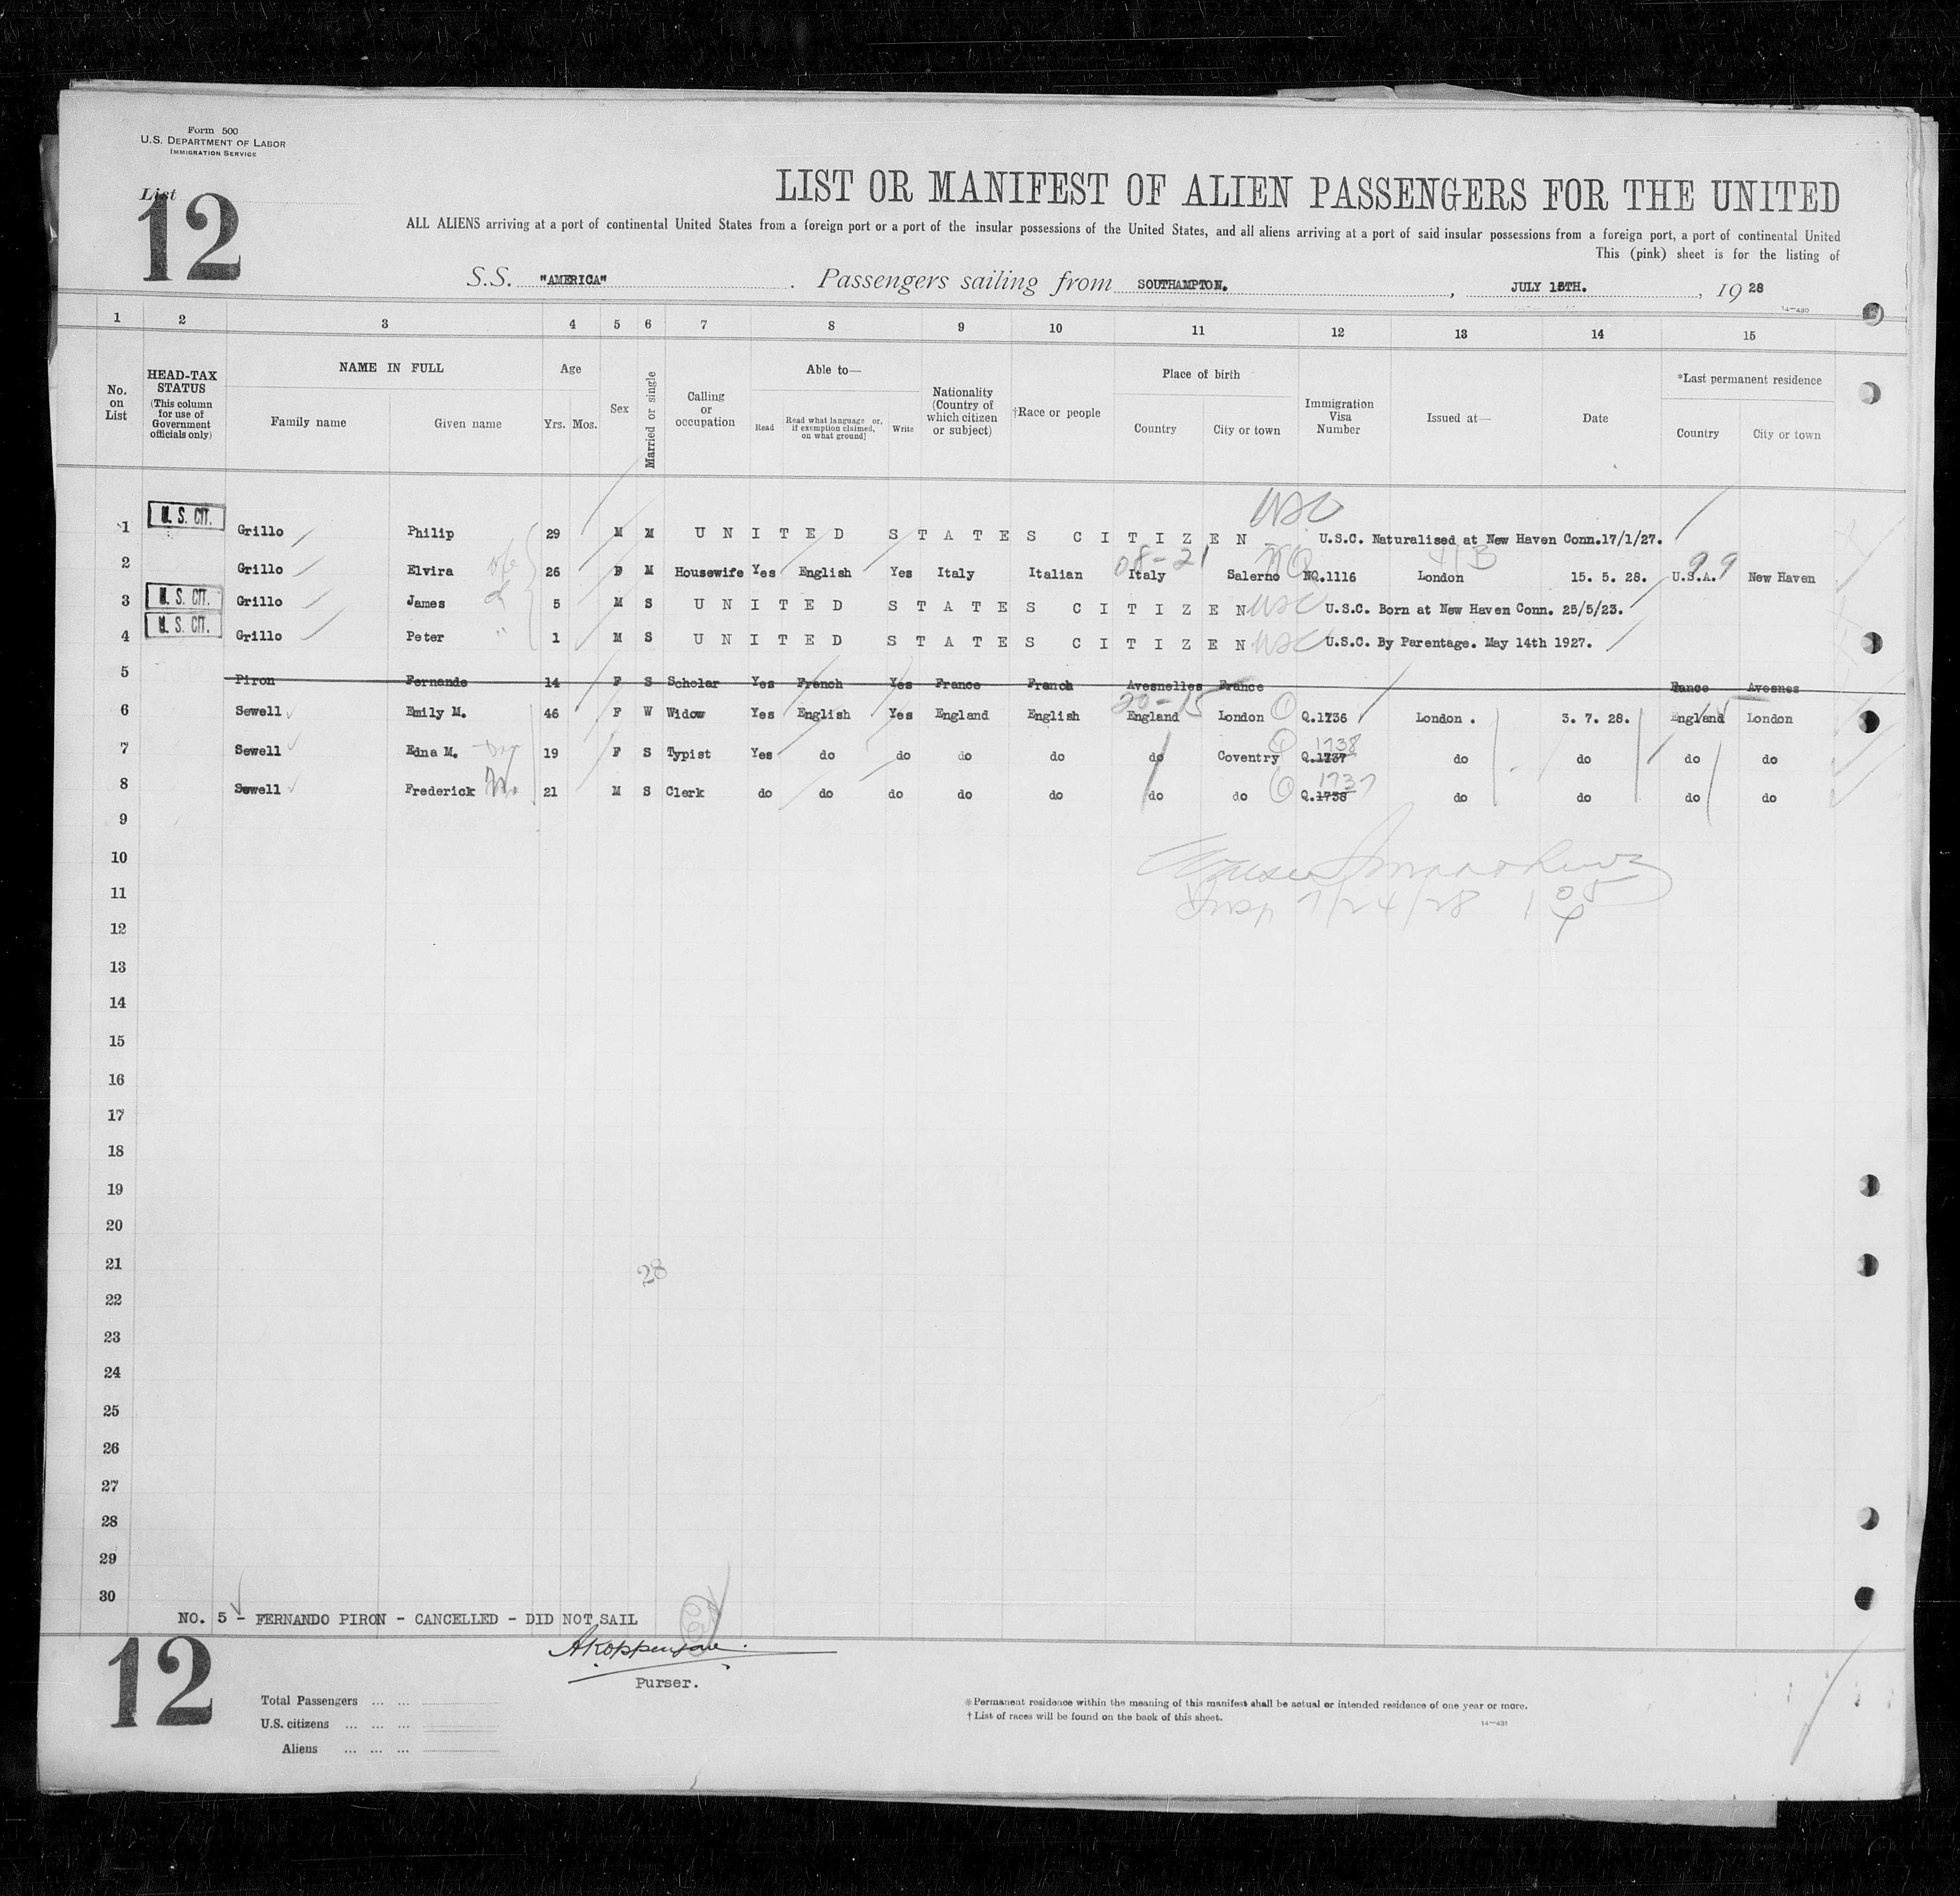 Form 500
U.S. DEPARTMENT OF LABOR
IMMIGRATION SERVICE
List
12
LIST OR MANIFEST OF ALIEN PASSENGERS FOR THE UNITED
ALL ALIENS arriving at a port of continental United States from a foreign port or a port of the insular possessions of the United States, and all aliens arriving at a port of said insular possessions from a foreign port, a port of continental United
This (pink) sheet is for the listing of
S.S. "AMERICA" . Passengers sailing from SOUTHAMPTON. , JULY 18TH. , 19 28
14—430
1 2 3 4 5 6 7 8 9 10 11 12 13 14 15
No. on List
HEAD-TAX STATUS (This column for use of Government officials only)
NAME IN FULL
Family name Given name
Age
Yrs. Mos.
Sex
Married or single
Calling or occupation
Able to—
Read Read what language or, if exemption claimed, on what ground] Write
Nationality (Country of which citizen or subject)
†Race or people
Place of birth
Country City or town
Immigration Visa Number
Issued at—
Date
*Last permanent residence
Country City or town
USC
1 U. S. CIT. Grillo Philip 29 M M UNITED STATES CITIZEN U.S.C. Naturalised at New Haven Conn.17/1/27.
08-21 99
2 Grillo Elvira wife 26 F M Housewife Yes English Yes Italy Italian Italy Salerno NQ.1116 London 15. 5. 28. U.S.A. New Haven
3 U. S. CIT. Grillo James 5 M S UNITED STATES CITIZEN USC U.S.C. Born at New Haven Conn. 25/5/23.
4 U. S. CIT. Grillo Peter " 1 M S UNITED STATES CITIZEN USC U.S.C. By Parentage. May 14th 1927.
5 Piron Fernande 14 F S Scholar Yes French Yes France French Avesnelles France France Avesnes
20-15
6 Sewell Emily M. 46 F W Widow Yes English Yes England English England London Q.1736 London . 3. 7. 28. England London
7 Sewell Edna M. 19 F S Typist Yes do do do do do Coventry Q.1737 1738 do do do do
8 Sewell Frederick 21 M S Clerk do do do do do do do Q.1738 1737 do do do do
9
10
11
12
13
14
15
16
17
18
19
20
21
28
22
23
24
25
26
27
28
29
30
NO. 5 - FERNANDO PIRON - CANCELLED - DID NOT SAIL
12
Purser.
Total Passengers ... ...
U.S. citizens ... ... ...
Aliens ... ... ...
* Permanent residence within the meaning of this manifest shall be actual or intended residence of one year or more.
† List of races will be found on the back of this sheet.
14—431